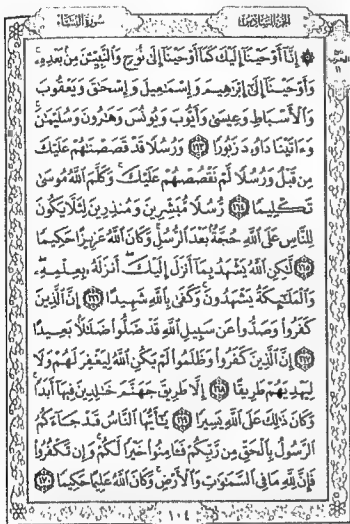 الجزء السادس سورة النساء
ربع
الحزب
١١
۞ إِنَّآ أَوْحَيْنَآ إِلَيْكَ كَمَآ أَوْحَيْنَآ إِلَىٰ نُوحٍ وَٱلنَّبِيِّـۧنَ مِنۢ بَعْدِهِۦۚ
وَأَوْحَيْنَآ إِلَىٰٓ إِبْرَٰهِيمَ وَإِسْمَٰعِيلَ وَإِسْحَٰقَ وَيَعْقُوبَ
وَٱلْأَسْبَاطِ وَعِيسَىٰ وَأَيُّوبَ وَيُونُسَ وَهَٰرُونَ وَسُلَيْمَٰنَۚ
وَءَاتَيْنَا دَاوُۥدَ زَبُورًا ١٦٣ وَرُسُلًا قَدْ قَصَصْنَٰهُمْ عَلَيْكَ
مِن قَبْلُ وَرُسُلًا لَّمْ نَقْصُصْهُمْ عَلَيْكَۚ وَكَلَّمَ ٱللَّهُ مُوسَىٰ
تَكْلِيمًا ١٦٤ رُّسُلًا مُّبَشِّرِينَ وَمُنذِرِينَ لِئَلَّا يَكُونَ
لِلنَّاسِ عَلَى ٱللَّهِ حُجَّةٌۢ بَعْدَ ٱلرُّسُلِۚ وَكَانَ ٱللَّهُ عَزِيزًا حَكِيمًا
١٦٥ لَّٰكِنِ ٱللَّهُ يَشْهَدُ بِمَآ أَنزَلَ إِلَيْكَۖ أَنزَلَهُۥ بِعِلْمِهِۦۖ
وَٱلْمَلَٰٓئِكَةُ يَشْهَدُونَۚ وَكَفَىٰ بِٱللَّهِ شَهِيدًا ١٦٦ إِنَّ ٱلَّذِينَ
كَفَرُوا۟ وَصَدُّوا۟ عَن سَبِيلِ ٱللَّهِ قَدْ ضَلُّوا۟ ضَلَٰلًۢا بَعِيدًا
١٦٧ إِنَّ ٱلَّذِينَ كَفَرُوا۟ وَظَلَمُوا۟ لَمْ يَكُنِ ٱللَّهُ لِيَغْفِرَ لَهُمْ وَلَا
لِيَهْدِيَهُمْ طَرِيقًا ١٦٨ إِلَّا طَرِيقَ جَهَنَّمَ خَٰلِدِينَ فِيهَآ أَبَدًاۚ
وَكَانَ ذَٰلِكَ عَلَى ٱللَّهِ يَسِيرًا ١٦٩ يَٰٓأَيُّهَا ٱلنَّاسُ قَدْ جَآءَكُمُ
ٱلرَّسُولُ بِٱلْحَقِّ مِن رَّبِّكُمْ فَـَٔامِنُوا۟ خَيْرًا لَّكُمْۚ وَإِن تَكْفُرُوا۟
فَإِنَّ لِلَّهِ مَا فِى ٱلسَّمَٰوَٰتِ وَٱلْأَرْضِۚ وَكَانَ ٱللَّهُ عَلِيمًا حَكِيمًا ١٧٠
١٠٤